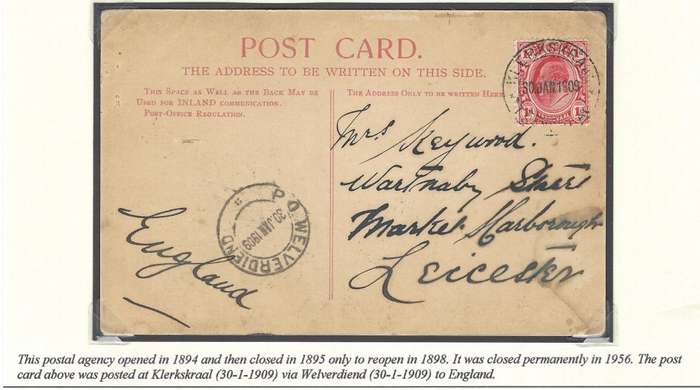 POST CARD.
THE ADDRESS TO BE WRITTEN ON THIS SIDE.
THIS SPACE AS WELL AS THE BACK MAY BE
USED FOR INLAND COMMUNICATION.
POST-OFFICE REGULATION.
THE ADDRESS ONLY TO BE WRITTEN HERE
KLERKSKRAAL
30 JAN 1909
Mrs Keywood.
Wartnaby Street
Market Harborough
Leicester
England
P.O. WELVERDIEND
30 JAN 1909
This postal agency opened in 1894 and then closed in 1895 only to reopen in 1898. It was closed permanently in 1956. The post
card above was posted at Klerkskraal (30-1-1909) via Welverdiend (30-1-1909) to England.